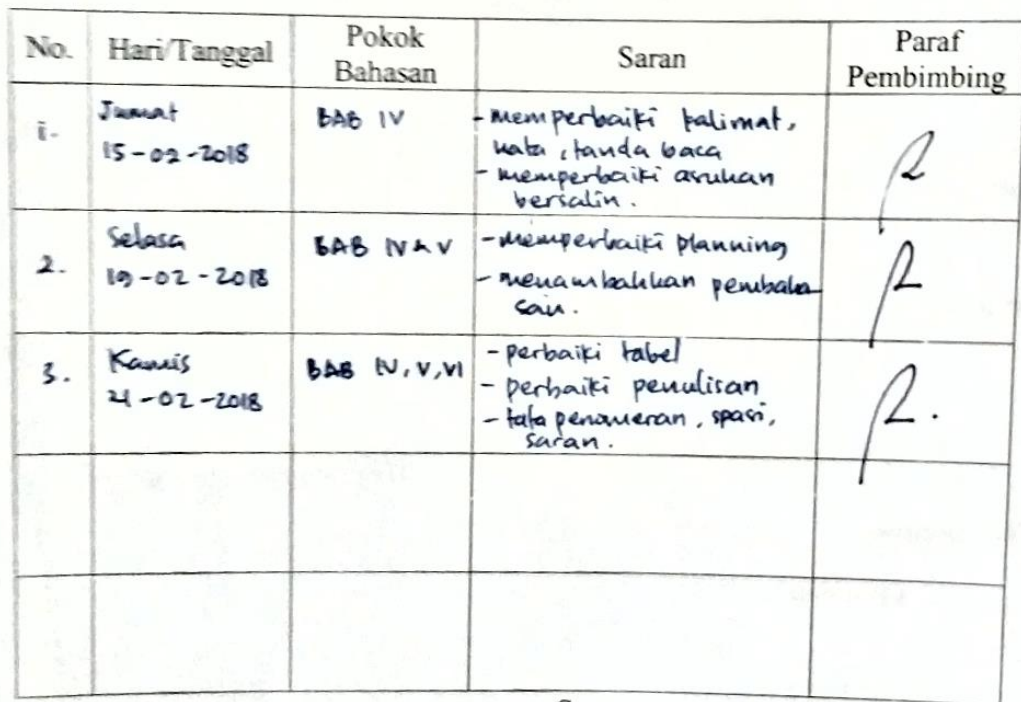 No. Hari/Tanggal Pokok Bahasan Saran Paraf Pembimbing
1. Jumat BAB IV - memperbaiki kalimat,
15-02-2018 kata, tanda baca
- memperbaiki asuhan
bersalin.
2. Selasa BAB IV & V - memperbaiki planning
19-02-2018 - menambahkan pembaha
san.
3. Kamis BAB IV, V, VI - perbaiki tabel
21-02-2018 - perbaiki penulisan
- tata penomeran, spasi,
saran.